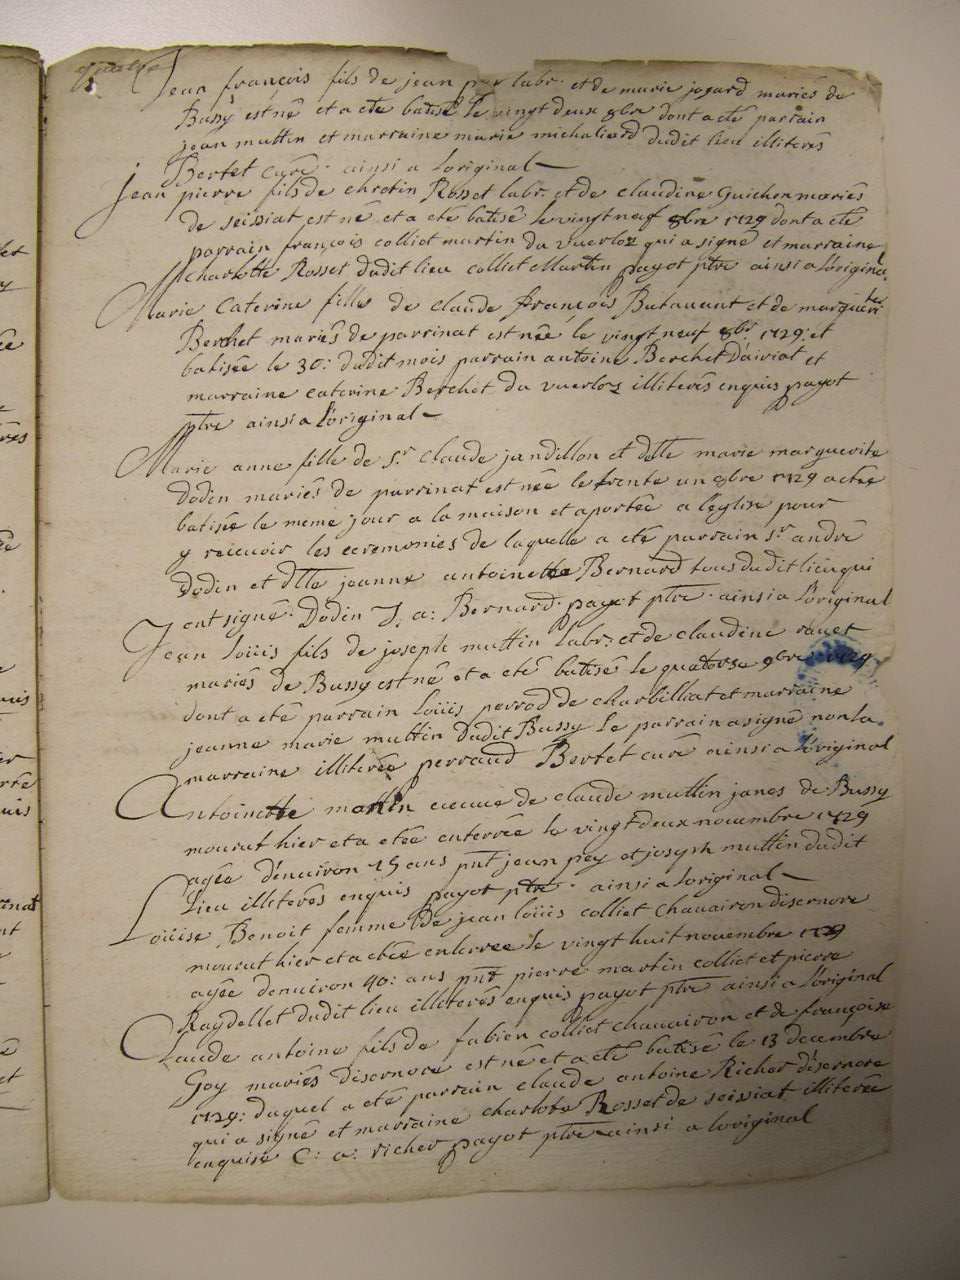 Jean françois fils de jean pey labr. et de marie jogard mariés de
Bussy est né et a eté batisé le vingt deux 8bre dont a eté parrain
jean muttin et marraine marie michaliard dudit lieu illiterés
Bertet curé. ainsi a Loriginal
jean pierre fils de chretin Rosset labr. et de claudine Guichon mariés
de seissiat est né et a eté batisé le vingt neuf 8bre 1729 dont a eté
parrain françois colliet martin du vuerloz qui a signé et marraine
charlotte Rosset dudit lieu colliet Martin payot ptre ainsi a Loriginal
Marie Caterine fille de claude françois Butavant et de marguerite
Berchet mariés de parrinat est née le vingt neuf 8br. 1729: et
batisée le 30: dudit mois parrain antoine Berchet d'airiat et
marraine caterine Berchet du vuerloz illiterés enquis payot
ptre ainsi a Loriginal
Marie anne fille de Sr. claude jandillon et dlle marie marguerite
Dodin mariés de parrinat est née le trente un 8bre 1729 a eté
batisée le meme jour a la maison et aportée a l'eglise pour
y recevoir les ceremonies de laquelle a eté parrain Sr. andré
Dodin et dlle jeanne antoinette Bernard tous dudit lieu qui
ont signé. Dodin J, a: Bernard. payot ptre. ainsi a Loriginal
Jean Loüis fils de joseph muttin Labr. et de claudine ravet
mariés de Bussy est né et a eté batisé le quatorse 9bre 1729
dont a eté parrain Loüis perrod de charbilliat et marraine
jeanne marie muttin dudit Bussy le parrain a signé non la
marraine illiterée perraud Bertet curé ainsi a Loriginal
Antoinette mattin veuve de claude muttin janes de Bussy
mourut hier et a etée enterrée le vingt deux novembre 1729
agée d'environ 75 ans pnt jean pey et joseph muttin dudit
Lieu illiterés enquis payot ptre. ainsi a Loriginal
Loüise Benoit femme de jean Loüis colliet chavairon disernore
mourut hier et a etée enterree le vingt huit novembre 1729
agée denviron 40: ans pnt pierre martin colliet et pierre
Raydellet dudit lieu illiterés enquis payot ptre ainsi a Loriginal
Claude antoine fils de fabien colliet chavairon et de françoise
Goy mariés disernore est né et a eté batisé le 13 decembre
1729: duquel a eté parrain claude antoine Richer d'isernore
qui a signé et marraine charlote Rosset de seissiat illiterée
enquise C: a: richer payot ptre ainsi a loriginal